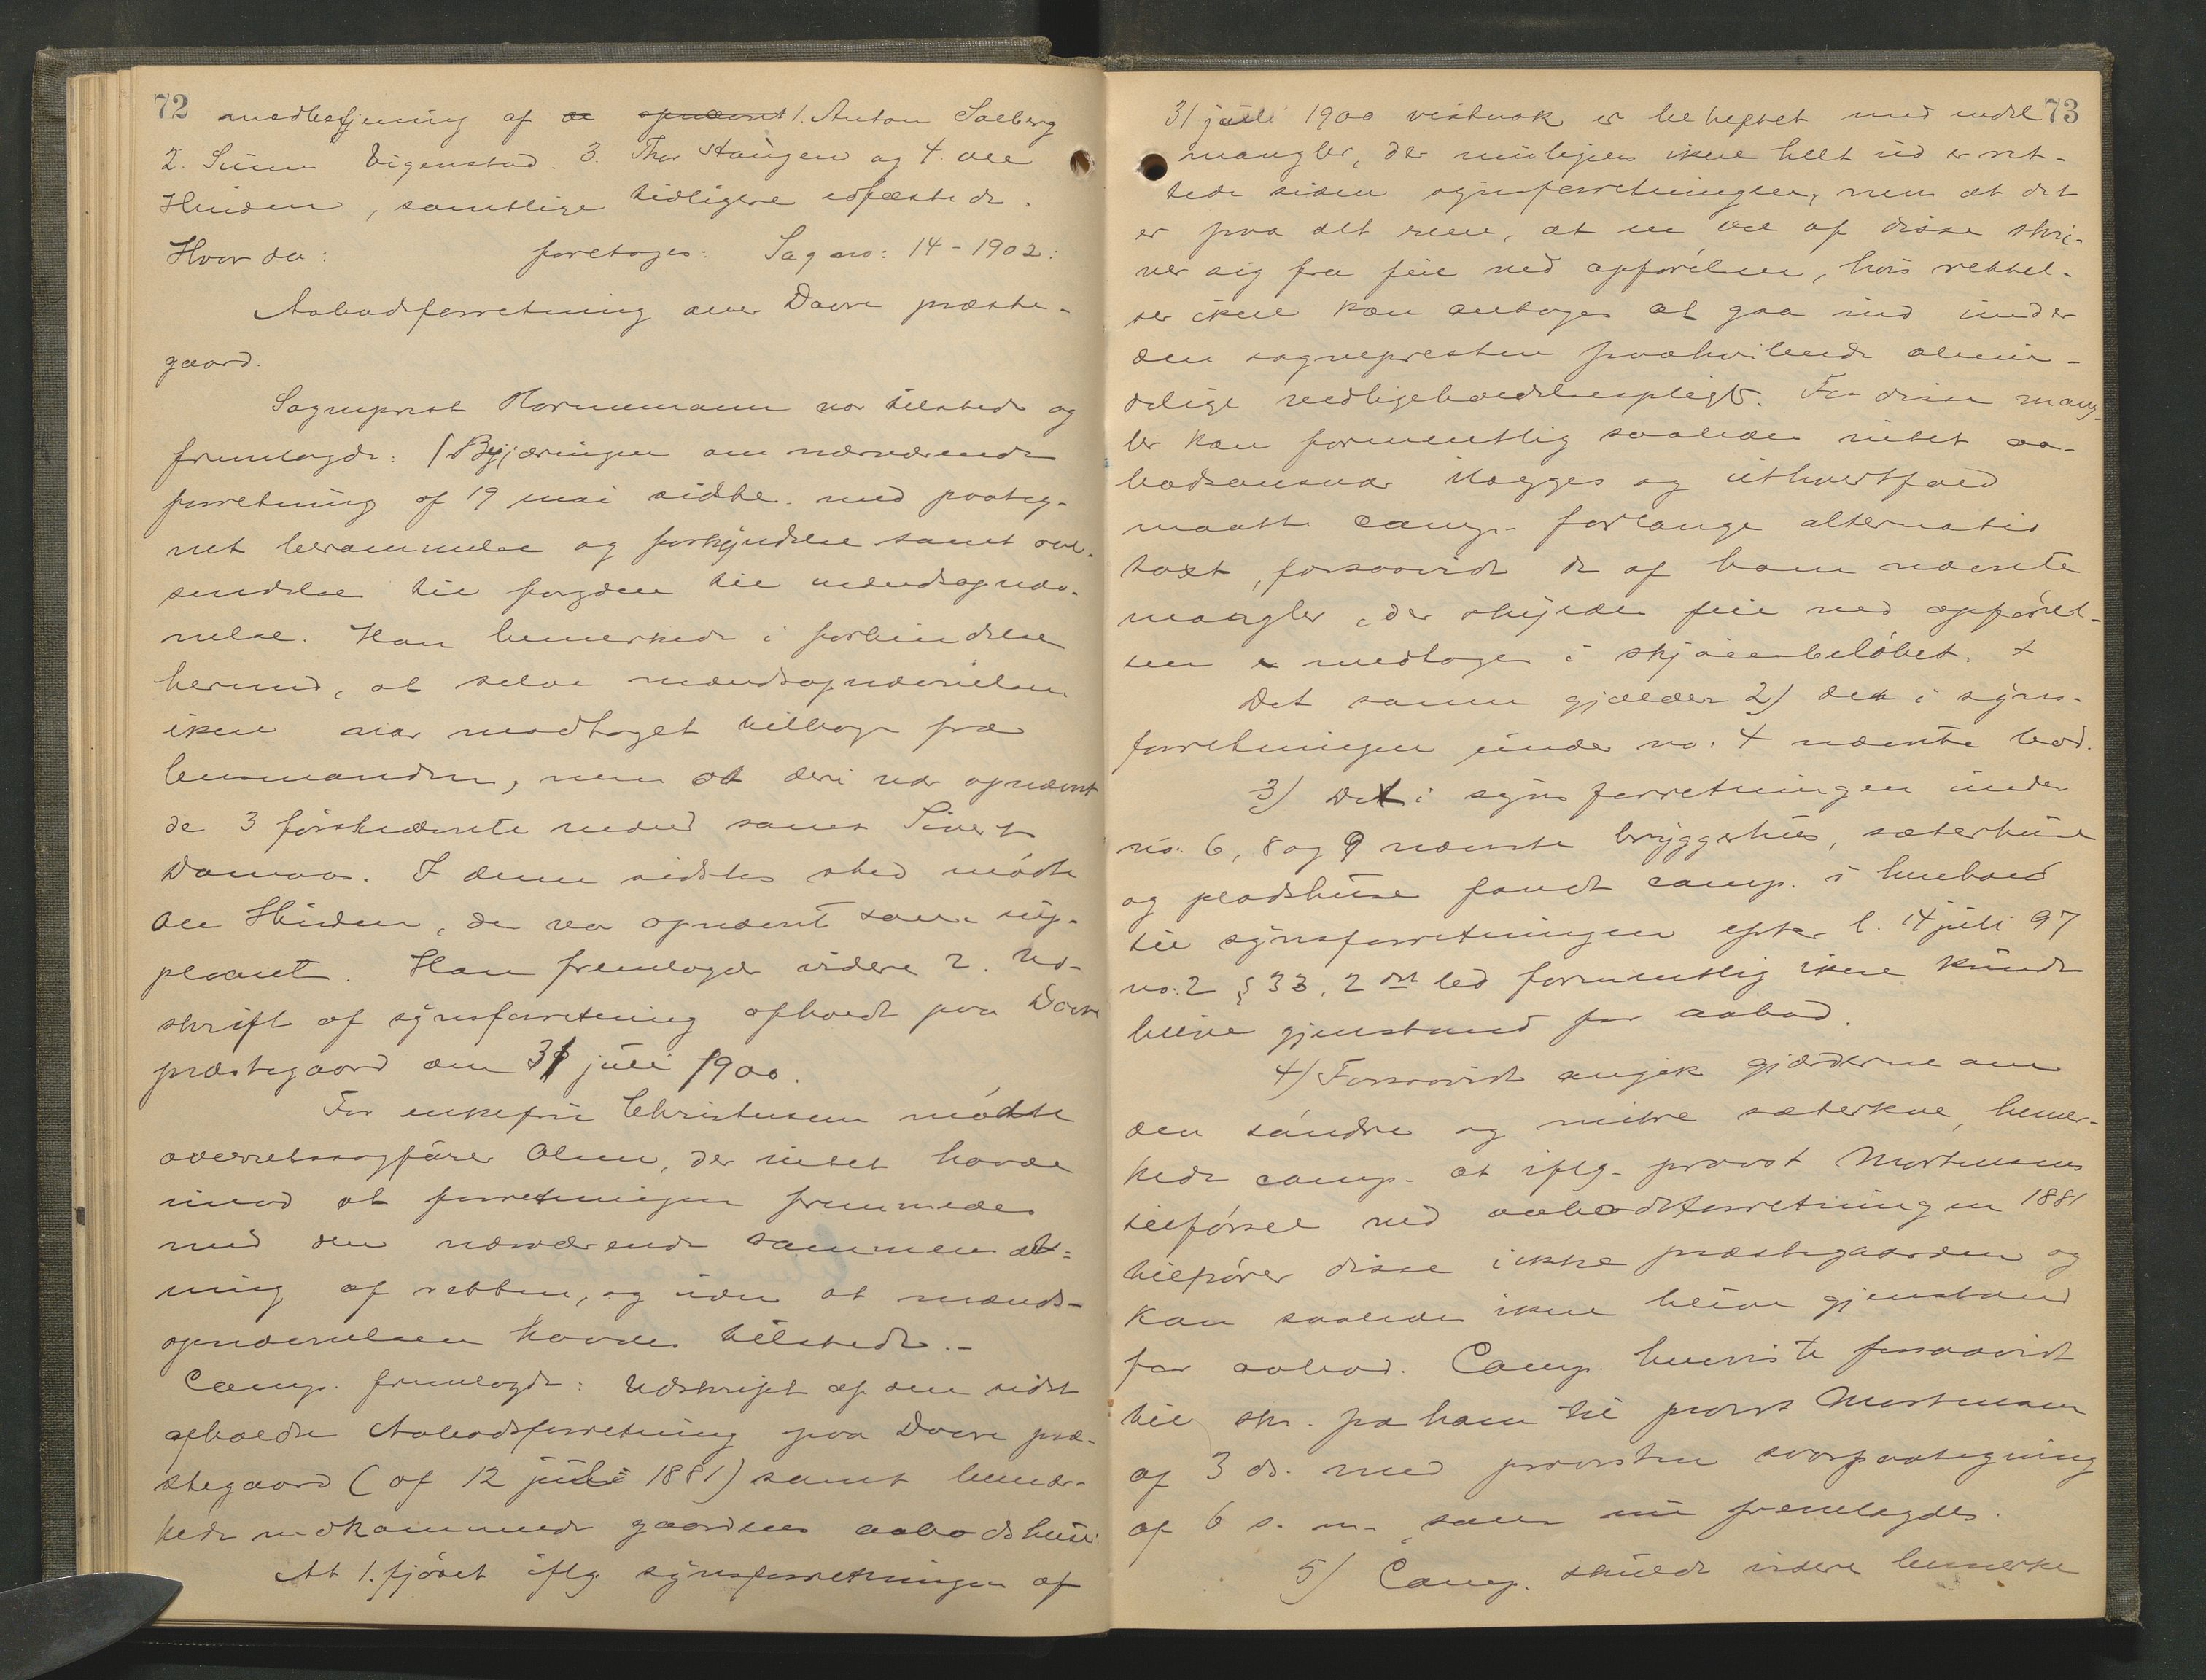 72
medbetjening af de opnævnt 1. Anton Solberg
2. Simen Vigenstad. 3. Thor Haugen og 4. Ole
Hinden, samtlige tidligere edfæstede.
Hvor da: foretoges: Sag no: 14-1902:
Aabodsforretning over Dovre præste-
gaard.
Sogneprest Hornemann var tilstede og
fremlagde: 1 Begjæringen om nærværende
forretning af 19 mai sidstl. med paateg-
net berammelse og forkyndelse samt over-
sendelse til fogden til mændsopnæv-
nelse. Han bemerkede i forbindelse
hermed, at selve mændsopnævnelsen
ikke var modtaget tilbage fra
lensmanden, men at deri var opnævnt
de 3 førstnævnte mænd samt Sivert
Domaas. I denne sidstes sted mødte
Ole Hinden, der var opnævnt som sup-
pleant. Han fremlagde videre 2. Ud-
skrift af synsforretning afholdt paa Dovre
præstegaard den 31 juli 1900.
For enkefru Christensen mødte
overretssagfører Olsen, der intet havde
imod at forretningen fremmedes
med den nærværende sammensæt-
ning af retten, og uden at mænds-
opnævnelsen havdes tilstede.-
Comp. fremlagde: Udskrift af den sidst
afholdte Aabodsforretning paa Dovre præ-
stegaard (af 12 juli 1881) samt bemær-
kede vedkommende gaardens aabodshuse:
At 1. fjøset iflg synsforretningen af
73
31 juli 1900 vistnok er beheftet med endel
mangler, der muligens ikke helt ud er ret-
tede siden synsforretningen, men at det
er paa det rene, at en del af disse skri-
ver sig fra feil ved opførelsen, hvis rettel-
se ikke kan antages at gaa ind under
den sognepresten paahvilende almin-
delige vedligeholdelsespligt. For disse mang-
ler kan formentlig saaledes intet aa-
bodsansvar ilægges og ithvertfald
maatte comp. forlange alternativ
taxt, forsaavidt de af ham nævnte
mangler, der skyldes feil ved opførel-
sen medtages i skjønsbeløbet. +
Det samme gjælder 2) det i syns-
forretningen under no: 4 nævnte bod.
3) Det i synsforretningen under
no. 6, 8 og 9 nævnte bryggerhus, sæterhuse
og pladshuse fandt comp. i henhold
til synsforretningen efter l. 14 juli 97
no. 2 § 33, 2 det led formentlig ikke kunde
blive gjenstand for aabod.
4) Forsaavidt angik gjærderne om
den søndre og nedre sæterkve, bemer-
kede comp. at iflg. provst Mortensens
tilførsel ved aabodsforretningen 1881
tilhører disse ikke præstegaarden og
kan saaledes ikke blive gjenstand
for aabod. Comp. henviste forsaavidt
til skr. fra ham til provst Mortensen
af 3 ds. med provstens svarpaategning
af 6 s. m. som nu fremlagdes.
5) Comp. skulde videre bemerke